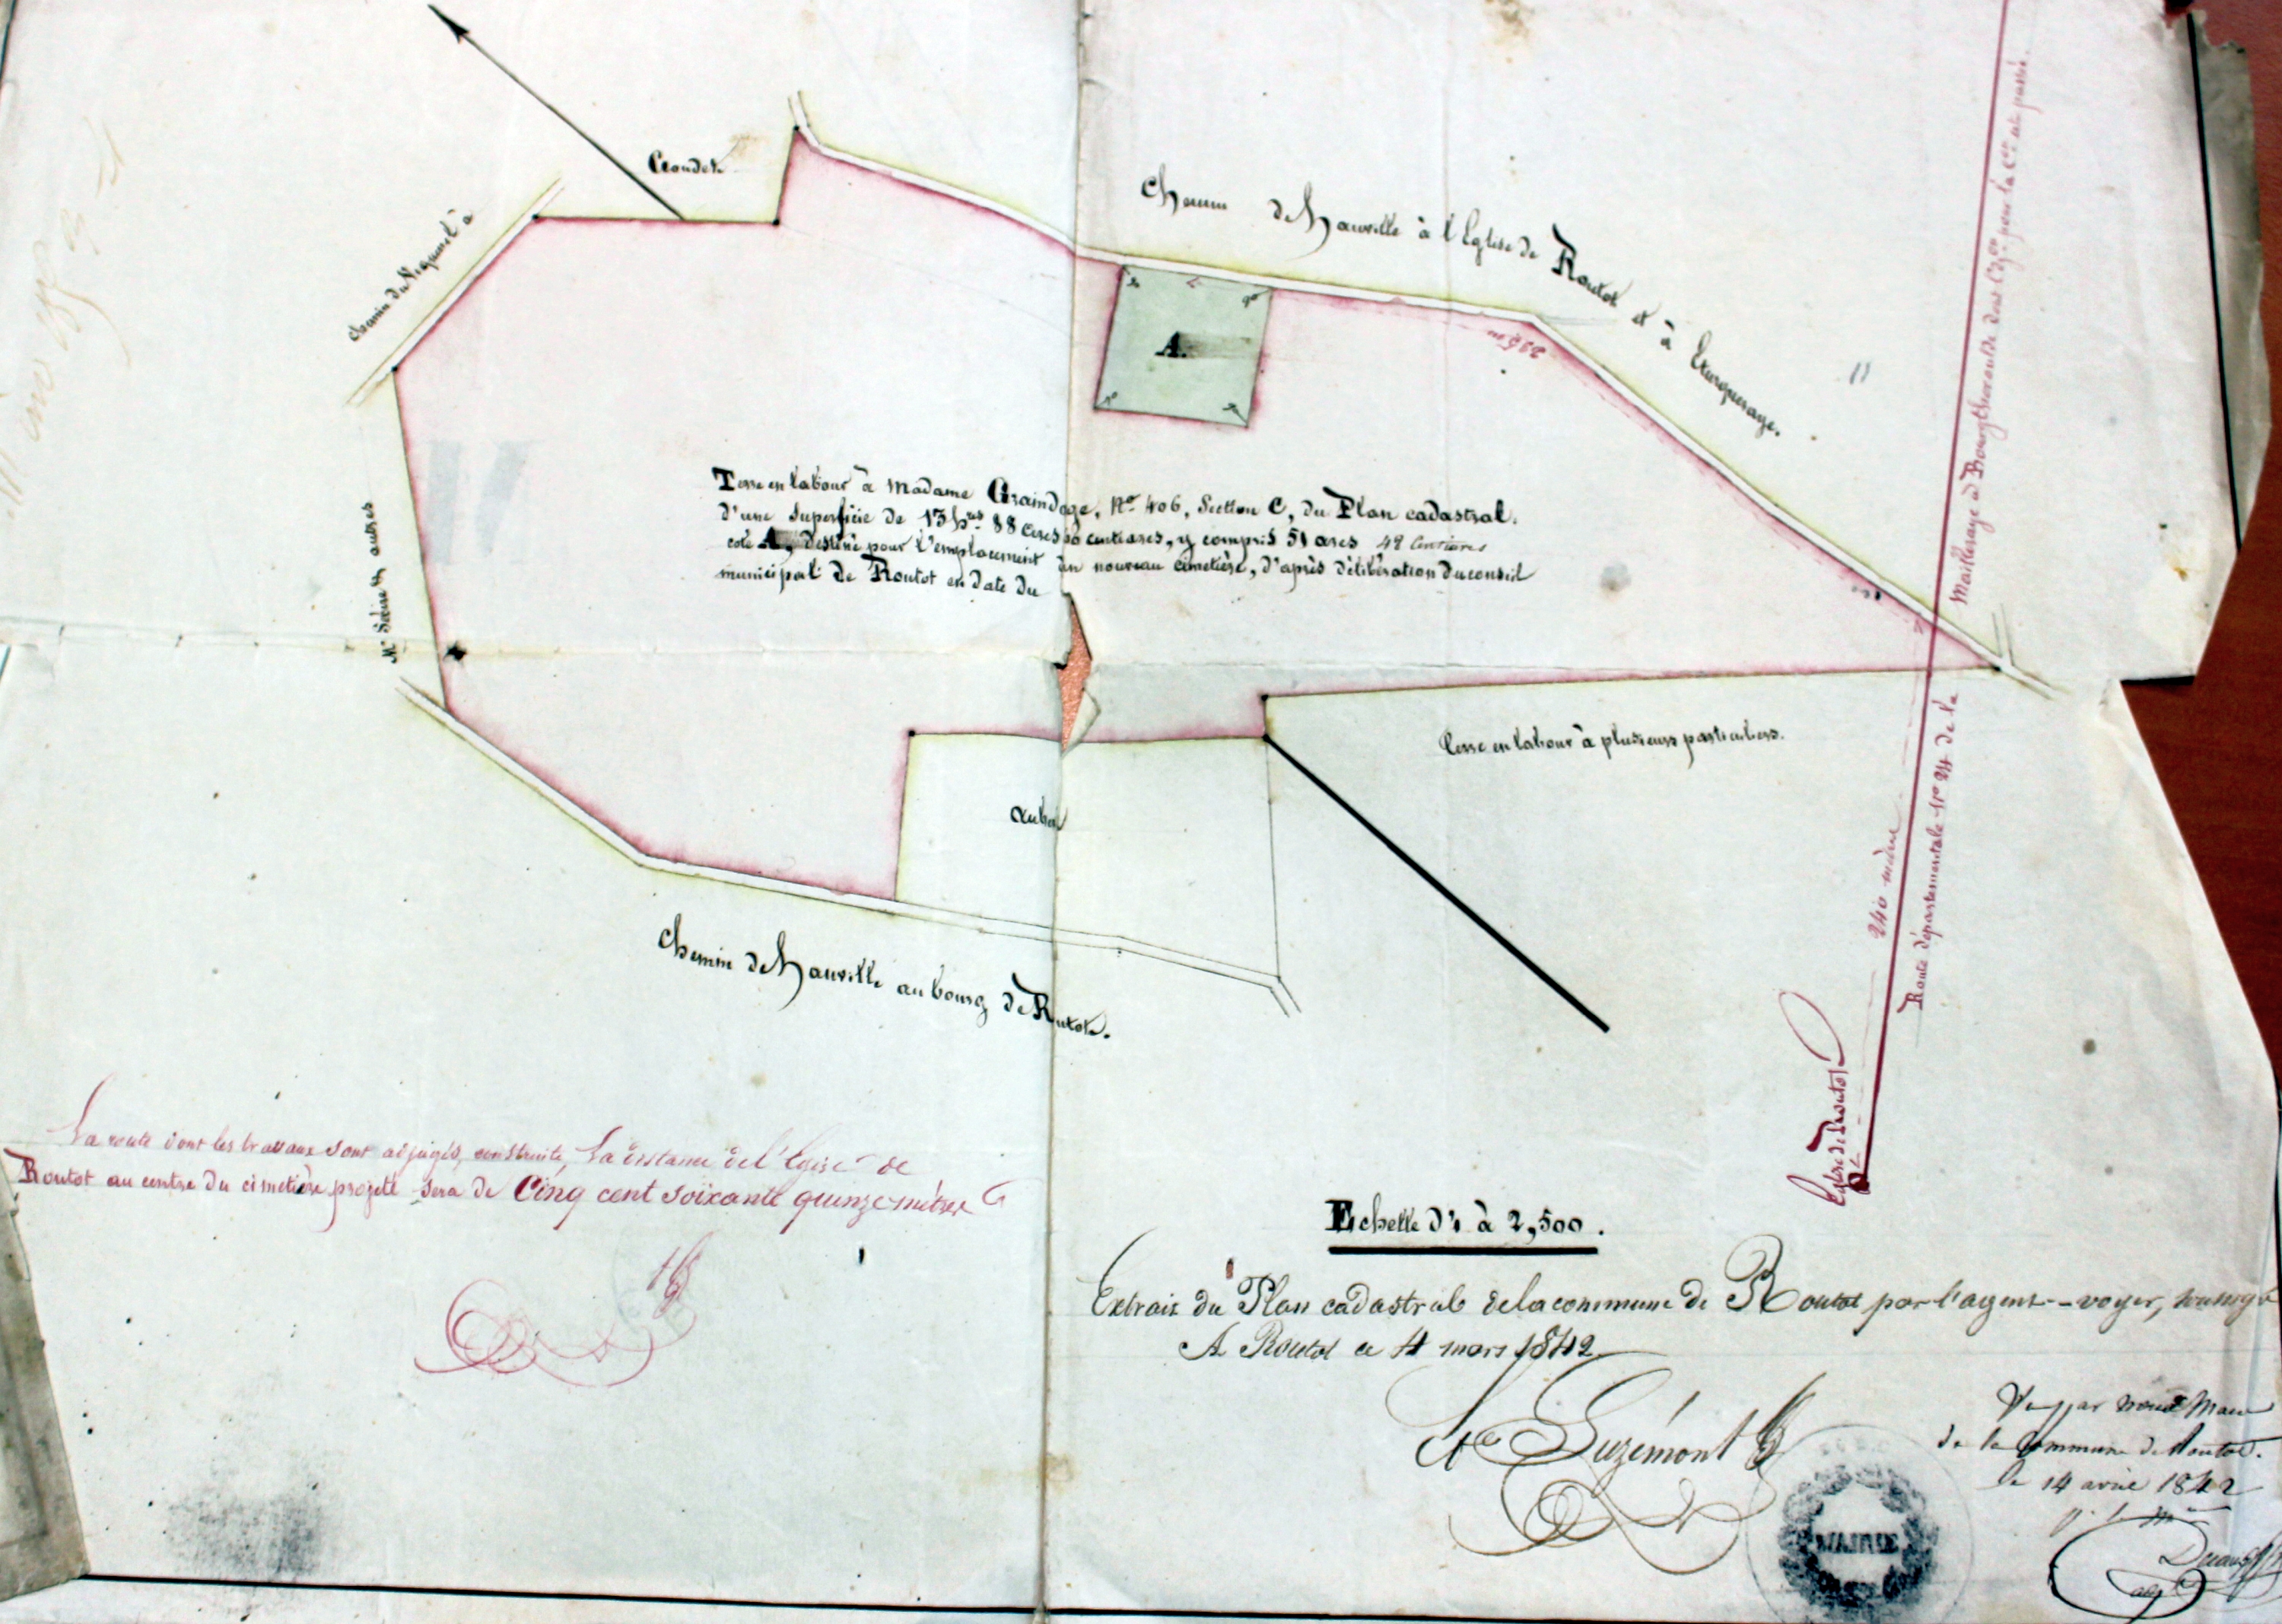 Chemin de Hauville à l'Eglise de Routot et à
Chemin du à
Terre en labour à Madame Graindorge, No. 406, Section C, du Plan cadastral.
d'une superficie de 13 hres 88 ares centiares, y compris 51 ares 48 Centiares
coté A, destiné pour l'emplacement du nouveau cimetière, d'après délibération du conseil
municipal de Routot en date du
A.
235 m
Mr et autres
Terre en labour à plusieurs particuliers.
Chemin de Hauville au bourg de Routot.
Route départementale No 24 de la
Mailleraye à Bourgtheroulde dont pour la est passée.
240 mètres
Eglise de Routot
La route dont les travaux sont adjugés, construite, La distance de l'Eglise de
Routot au centre du cimetière projeté sera de Cinq cent soixante quinze mètres
Echelle d'1 à 2,500.
Extrait du Plan cadastral de la commune de Routot par l'agent-voyer, soussigné
A Routot ce 4 mars 1842.
Vu par nous Maire
de la Commune de Routot.
le 14 avril 1842
MAIRIE